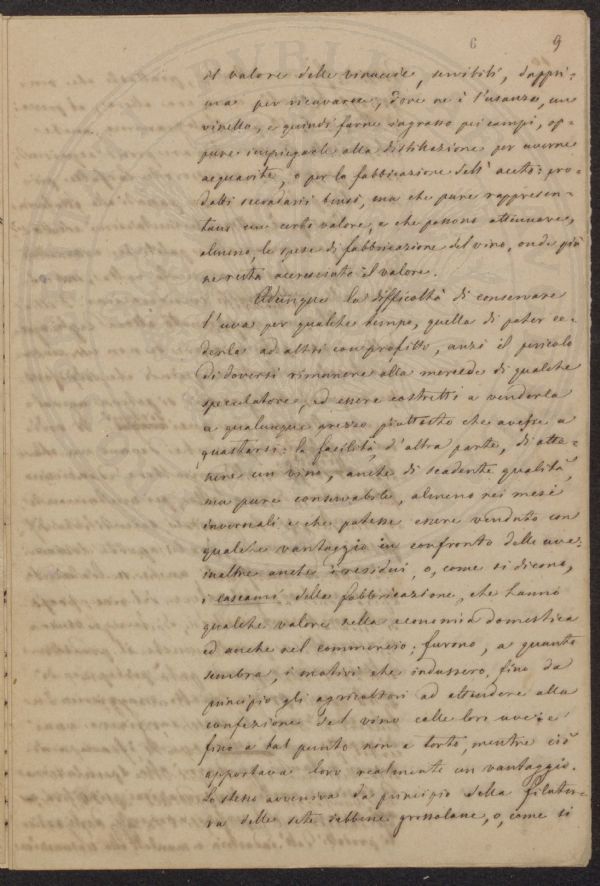 6 9
il valore delle vinaccie, servibili, dappri-
ma per ricavarne, dove ne è l'usanza, un
vinello, e quindi farne ingrasso pei campi, op-
pure impiegarle alla distillazione per averne
acquavite, o per la fabbricazione dell' aceto: pro-
dotti secondarii bensì, ma che pure rappresen-
tano un certo valore, e che possono attenuare,
almeno, le spese di fabbricazione del vino, onde più
ne resta accresciuto il valore.
Adunque la difficoltà di conservare
l'uva per qualche tempo, quella di poter ce-
derla ad altri con profitto, anzi il pericolo
di doversi rimanere alla mercede di qualche
speculatore, ed essere costretti a venderla
a qualunque prezzo piuttosto che avesse a
guastarsi: la facilità, d'altra parte, di otte-
nere un vino, anche di scadente qualità,
ma pure conservabile, almeno nei mesi
invernali e che potesse essere venduto con
qualche vantaggio in confronto delle uve:
inoltre anche i residui, o, come si dicono,
i cascami della fabbricazione, che hanno
qualche valore nella economia domestica
ed anche nel commercio; furono, a quanto
sembra, i motivi che indussero, fino da
principio gli agricoltori ad attendere alla
confezione del vino colle loro uve: e
fino a tal punto non a torto, mentre ciò
apportava loro realmente un vantaggio.
Lo stesso avveniva da principio della filatu-
ra delle sete sebbene grossolane, o, come si